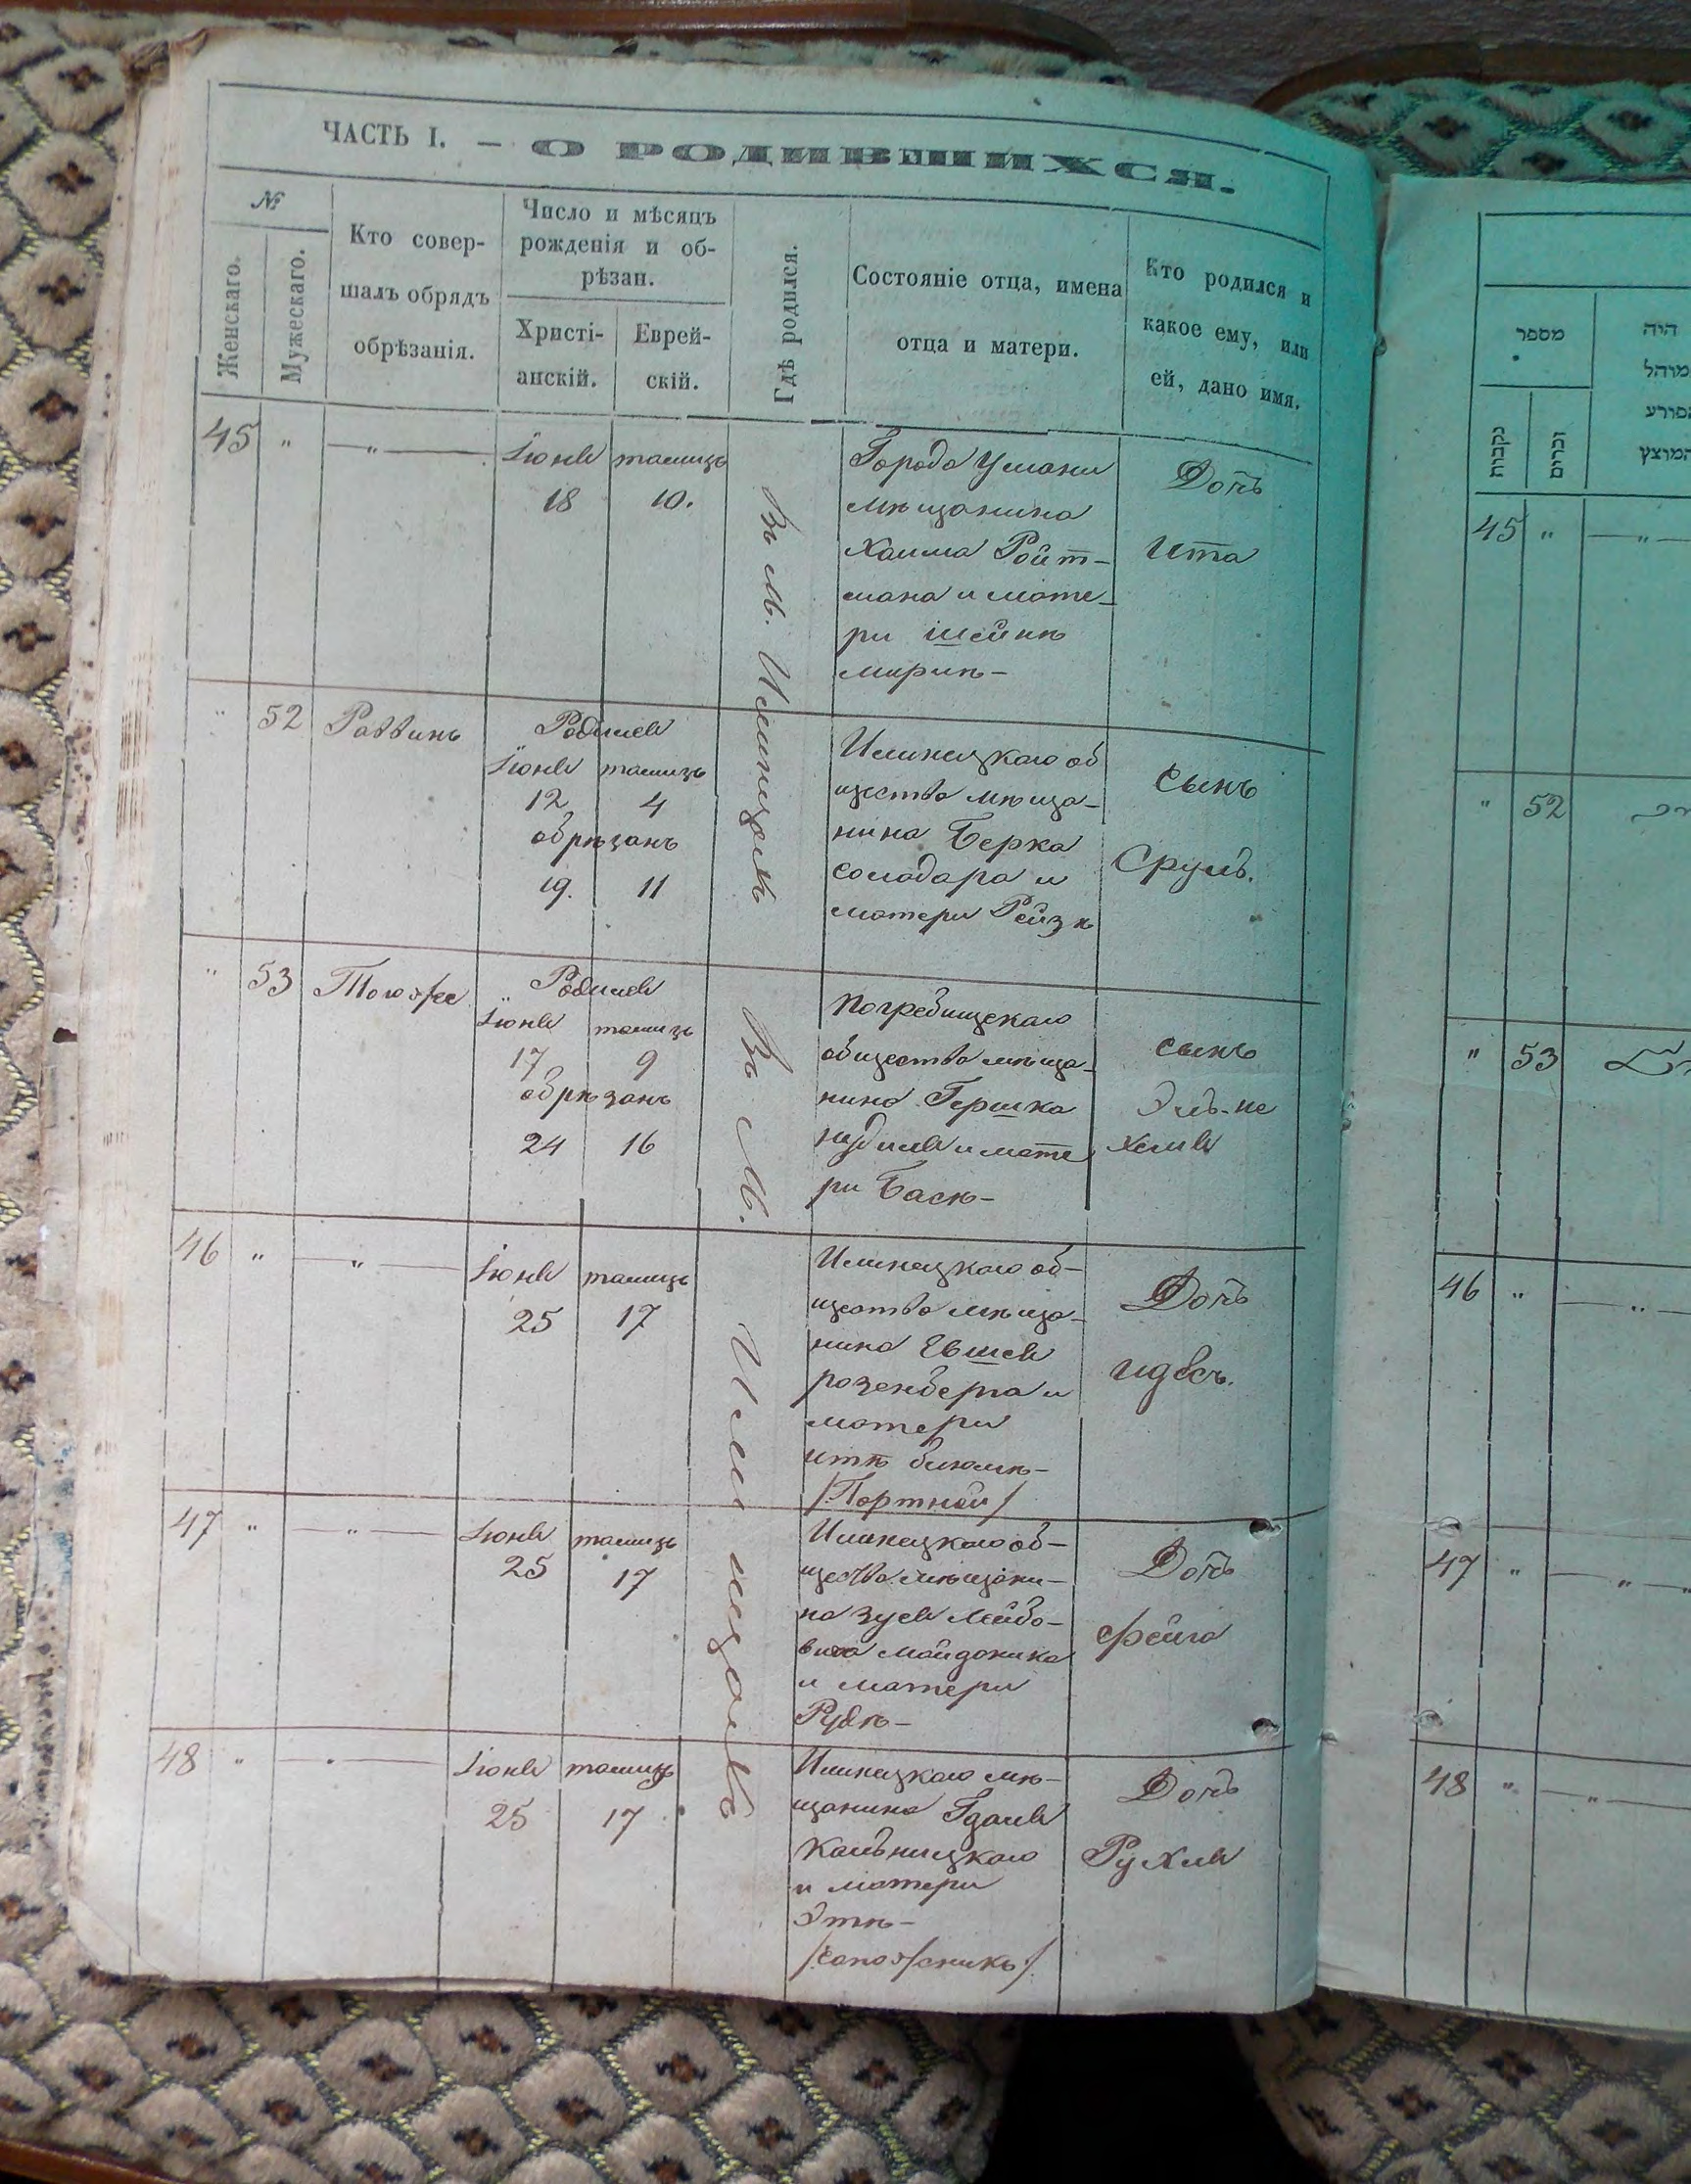 ЧАСТЬ I. — О РОДИВШИХСЯ.
№
Женскаго.
Мужескаго.
Кто совер-
шалъ обрядъ
обрѣзанія.
Число и мѣсяцъ
рожденія и об-
рѣзан.
Христі-
анскій.
Еврей-
скій.
Гдѣ родился.
Состояніе отца, имена
отца и матери.
Кто родился и
какое ему, или
ей, дано имя.
Въ м. Илинцахъ
Въ м. Илинцахъ
45 " — " —
Іюня тамузъ
18 10.
Города Умани
мѣщанина
Хаима Ройт-
мана и мате-
ри Шейнѣ
мирнѣ-
Дочь
Ита
" 52 Раввинъ
Родился
Іюня тамузъ
12 4
обрѣзанъ
19. 11
Илинецкаго об
щества мѣща-
нина Берка
солодара и
матери Рейзѣ
сынъ
Сруль.
" 53 Тоюже
Родился
Іюня тамузъ
17 9
обрѣзанъ
24 16
Погребищскаго
общества мѣща-
нина Гершка
и мате
ри Басѣ-
сынъ
46 " — " —
Іюня тамузъ
25 17
Илинецкаго об-
щества мѣща-
нина Евшея
розенберга и
матери
итѣ блюмѣ-
/Портной/
Дочь
идесъ.
47 " — " —
Іюня тамузъ
25 17
Илинецкаго об-
щества мѣщани-
на зуся Лейбо-
вича майданика
и матери
Рубѣ-
Дочь
фейга
48 " — " —
Іюня тамузъ
25 17
Илинецкаго мѣ-
щанина
Кальницкаго
и матери
Этѣ-
/сапожникъ/.
Дочь
Рухля
מספר
נקבות
זכרים
היה
מוהל
הפורע
המוצץ
45 " — " —
" 52
" 53
46 " — " —
47 " — " —
48 " — " —